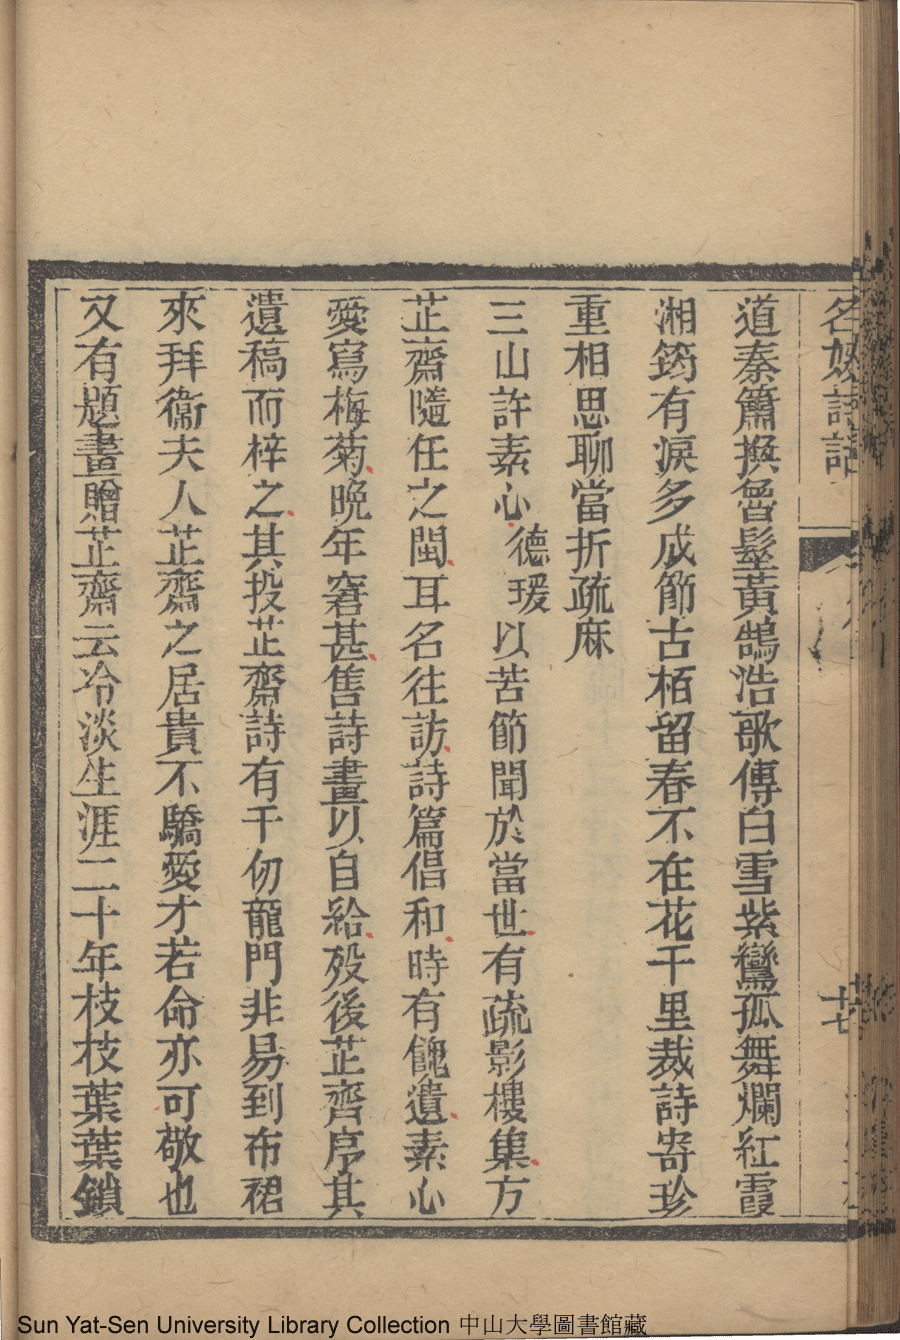 名媛詩話
十七
道秦簫撰曾髽黃鵠浩歌傳白雪紫鸞孤舞爛紅霞
湘筠有淚多成節古栢留春不在花千里裁詩寄珍
重相思聊當折疏麻
三山許素心德瑗以苦節聞於當世有疏影樓集方
芷齋隨任之閩耳名往訪詩篇倡和時有餽遺素心
愛寫梅菊晚年窘甚售詩畫以自給歿後芷齊序其
遺稿而梓之其投芷齋詩有千仞龍門非易到布裙
來拜衞夫人芷齋之居貴不驕愛才若命亦可敬也
又有題畫贈芷齋云冷淡生涯二十年枝枝葉葉鎖
Sun Yat-Sen University Library Collection 中山大學圖書館藏